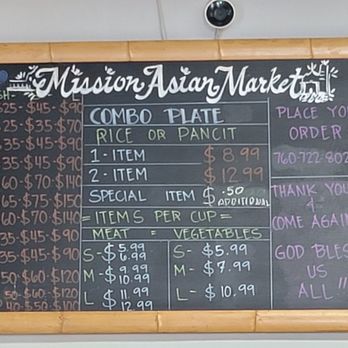 Mission Asian Market
COMBO PLATE
RICE OR PANCIT
1 - ITEM $ 8.99
2 - ITEM $ 12.99
SPECIAL ITEM $ .50 ADDITIONAL
= ITEMS PER CUP =
MEAT = VEGETABLES
S - $ 5.99 S - $ 5.99
$ 6.99
M - $ 9.99 M - $ 7.99
$ 10.99
L - $ 11.99 L - $ 10.99
$ 12.99
PLACE YO
ORDER
760-722-802
THANK YOU
&
COME AGAIN
GOD BLES
US
ALL!!
25 - $45 - $90
25 - $35 - $70
35 - $45 - $90
35 - $45 - $90
60 - $70 - $120
65 - $75 - $150
60 - $70 - $140
35 - $45 - $90
35 - $45 - $90
50 - $60 - $120
50 - $60 - $120
40 - $50 - $100